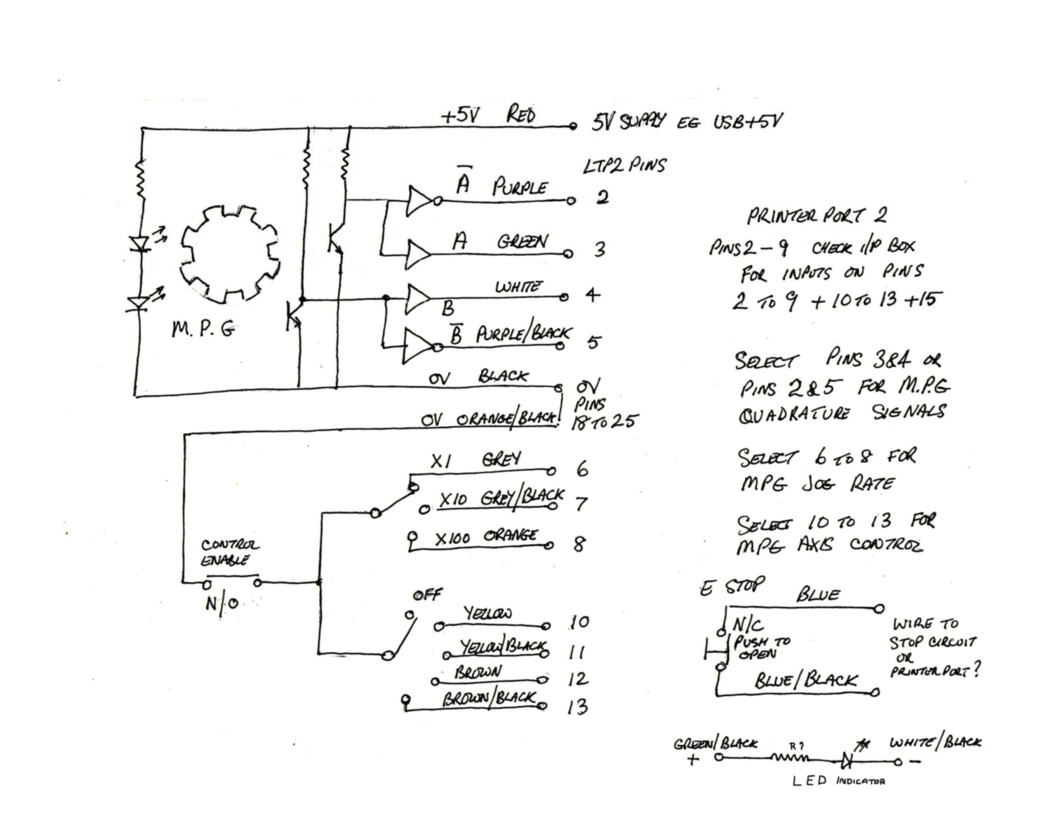 +5V RED 5V SUPPLY EG USB+5V
LTP2 PINS
A̅ PURPLE 2
A GREEN 3
WHITE 4
B
B̅ PURPLE/BLACK 5
M.P.G
0V BLACK 0V
PINS
0V ORANGE/BLACK 18 TO 25
X1 GREY 6
X10 GREY/BLACK 7
X100 ORANGE 8
CONTROL
ENABLE
N/O
OFF
YELLOW 10
YELLOW/BLACK 11
BROWN 12
BROWN/BLACK 13
PRINTER PORT 2
PINS 2-9 CHECK I/P BOX
FOR INPUTS ON PINS
2 TO 9 + 10 TO 13 +15
SELECT PINS 3&4 OR
PINS 2&5 FOR M.P.G
QUADRATURE SIGNALS
SELECT 6 TO 8 FOR
MPG JOG RATE
SELECT 10 TO 13 FOR
MPG AXIS CONTROL
E STOP
BLUE
N/C
PUSH TO
OPEN
BLUE/BLACK
WIRE TO
STOP CIRCUIT
OR
PRINTER PORT?
GREEN/BLACK R? WHITE/BLACK
+ -
LED INDICATOR